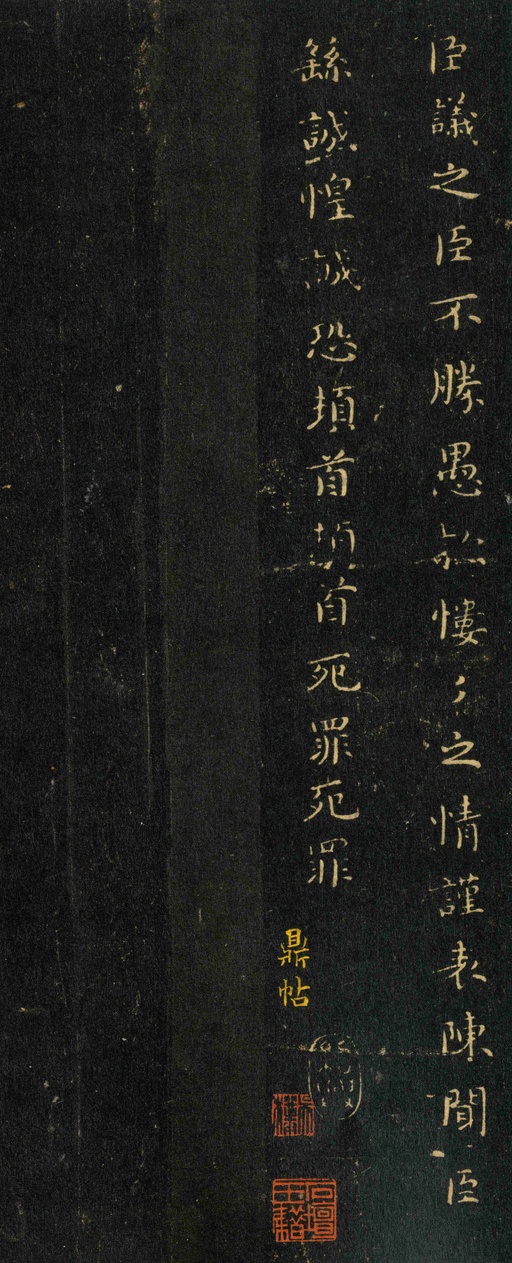 臣議之臣不勝愚慺〻之情謹表陳聞臣
繇誠惶誠恐頓首頓首死罪死罪
鼎帖